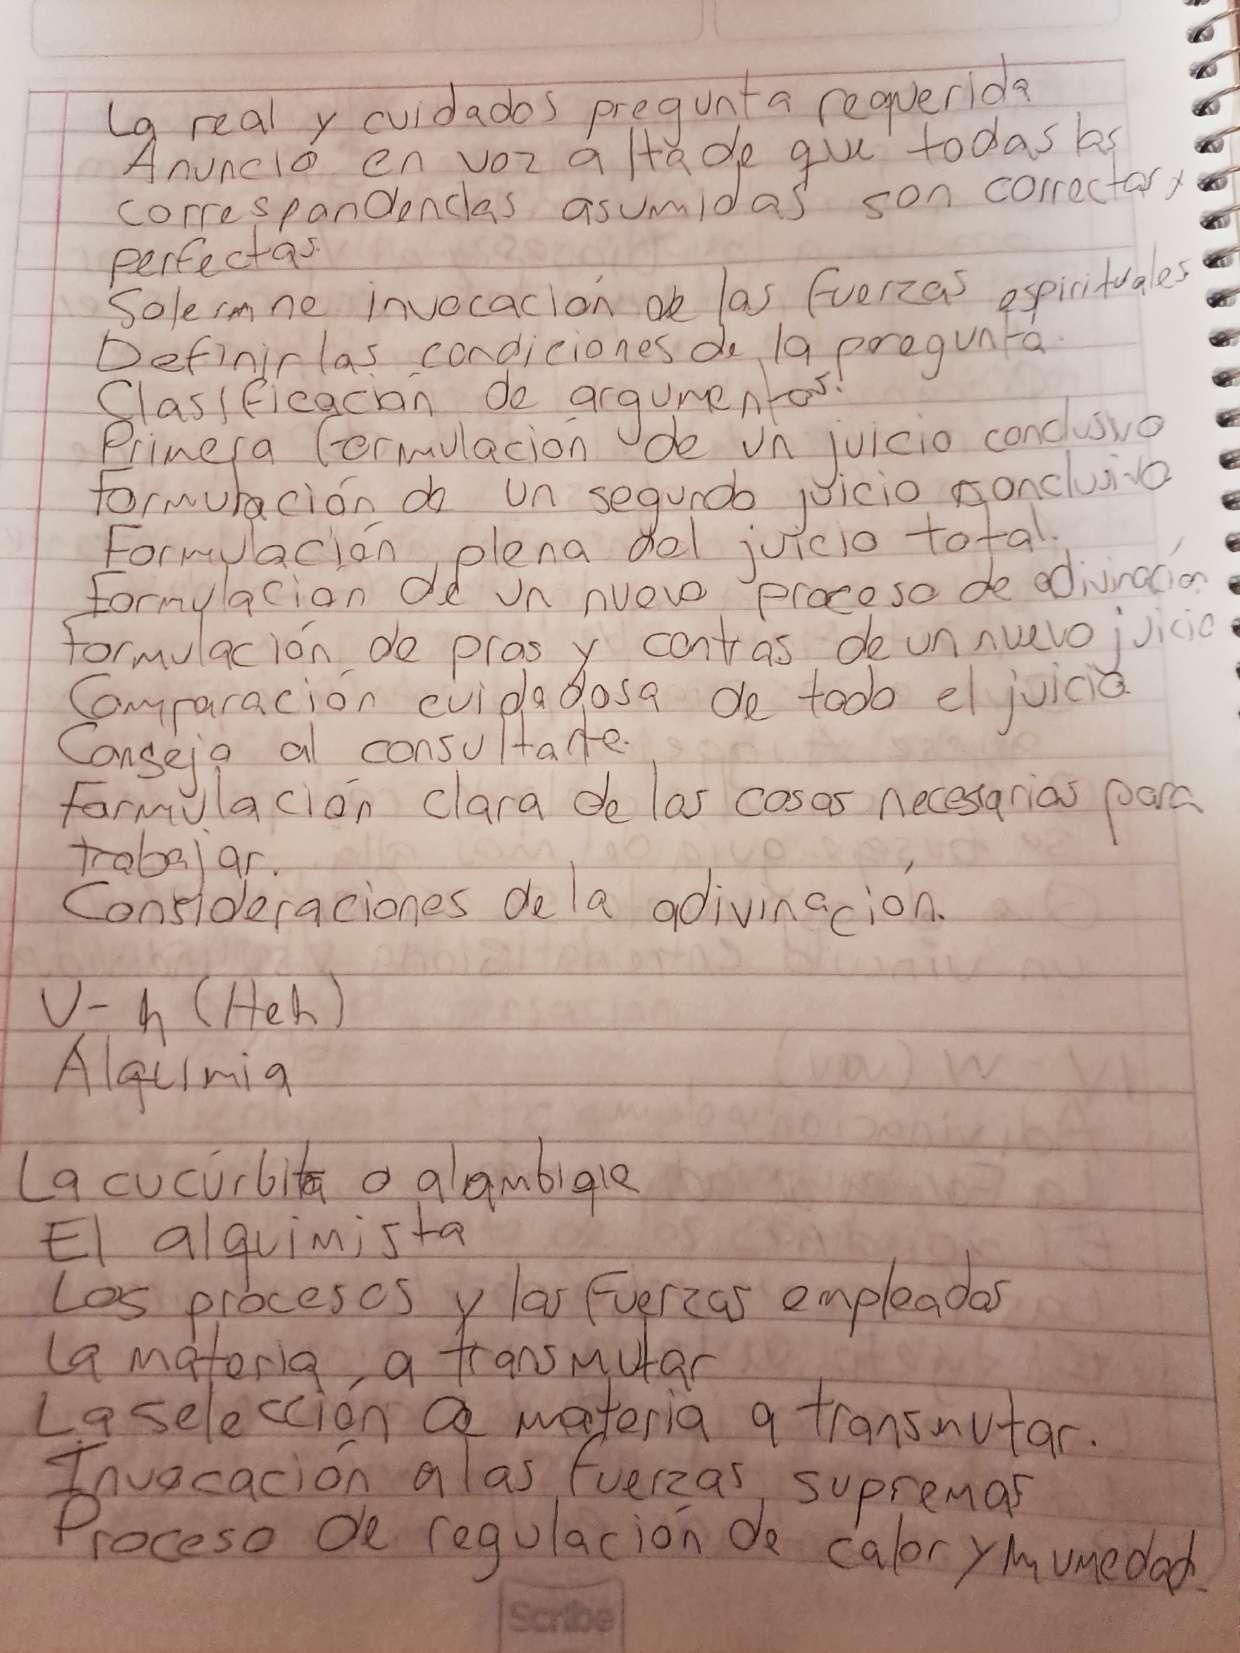 La real y cuidados pregunta requerida
Anuncio en voz alta de que todas las
correspondencias asumidas son correctas y
perfectas.
Solemne invocación de las fuerzas espirituales
Definir las condiciones de la pregunta.
Clasificación de argumentos.
Primera formulación de un juicio conclusivo
Formulación de un segundo juicio conclusivo
Formulación plena del juicio total.
Formulación de un nuevo proceso de adivinación
Formulación de pros y contras de un nuevo juicio
Comparación cuidadosa de todo el juicio
Consejo al consultante.
Formulación clara de las cosas necesarias para
trabajar.
Consideraciones de la adivinación.
V-h (Heh)
Alquimia
La cucúrbita o alambique
El alquimista
Los procesos y las fuerzas empleadas
La materia a transmutar
La selección de materia a transmutar.
Invocación a las fuerzas supremas
Proceso de regulación de calor y humedad.
Scribe